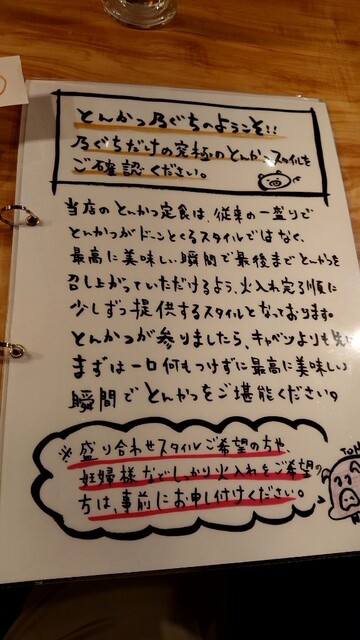 とんかつ乃ぐちのようこそ!!
乃ぐちだけの究極のとんかつスタイルを
ご確認ください。
当店のとんかつ定食は、従来の一盛りで
とんかつがドーンとくるスタイルではなく、
最高に美味しい瞬間で最後までとんかつを
召し上がっていただけるよう、火入れ完了順に
少しずつ提供するスタイルとなっております。
とんかつが参りましたら、キャベツよりも先に
まずは一口何もつけずに最高に美味しい
瞬間でとんかつをご堪能ください。
※盛り合わせスタイルご希望の方や、
妊婦様などしっかり火入れをご希望の
方は、事前にお申し付けください。